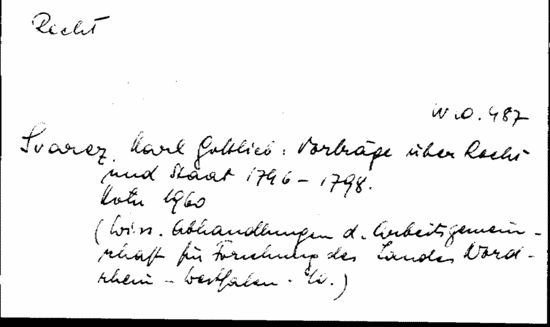 Recht
W.O. 487
Svarez, Karl Gottlieb: Vorträge über Recht
und Staat 1746 - 1798.
Köln 1960
(Wiss. Abhandlungen d. Arbeitsgemein-
schaft für Forschung des Landes Nord-
rhein - Westfalen.